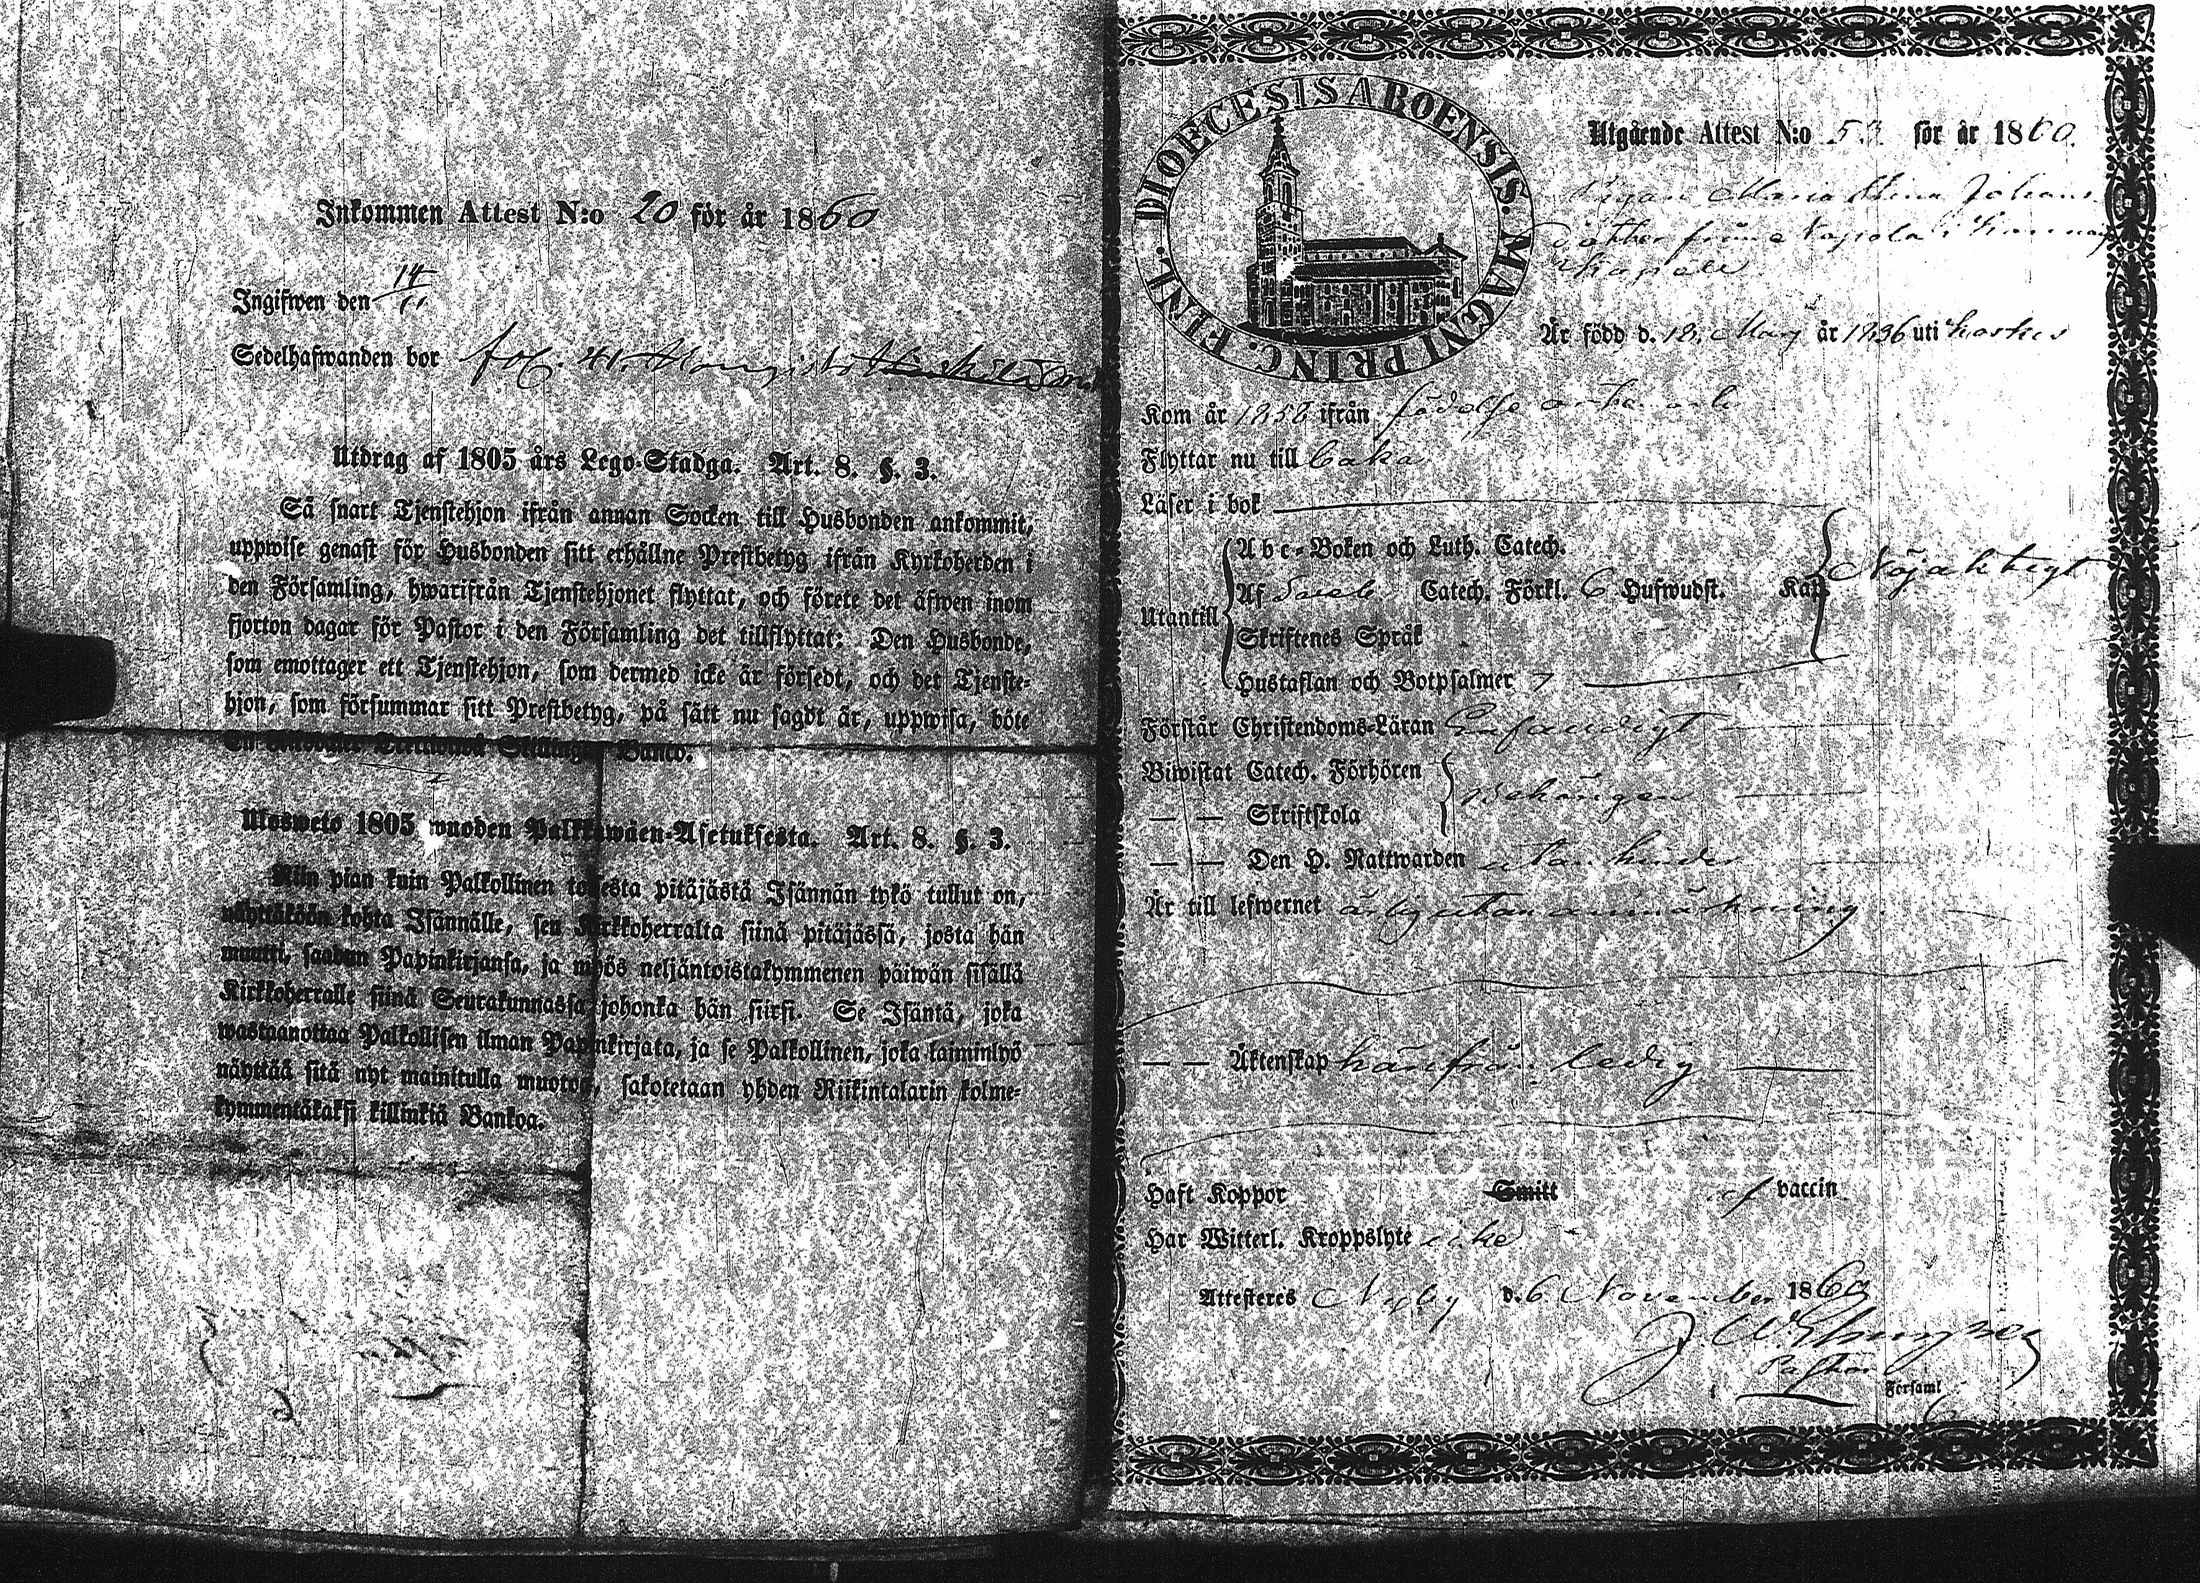 Inkommen Attest N:o 20 för år 1860
Ingifwen den 14/11
Sedelhafwanden bor fol. 41.
Utdrag af 1805 års Lego-Stadga. Art. 8. §. 3.
Så snart Tjenstehjon ifrån annan Socken till Husbonden ankommit,
uppwise genast för Husbonden sitt erhållne Prestbetyg ifrån Kyrkoherden i
den Församling, hwarifrån Tjenstehjonet flyttat, och förete det äfwen inom
fjorton dagar för Pastor i den Församling det tillflyttat: Den Husbonde,
som emottager ett Tjenstehjon, som dermed icke är försedt, och det Tjenste-
hjon, som försummar sitt Prestbetyg, på sätt nu sagdt är, uppwisa, böte
En Riksdaler Trettiotwå Skillingar Banco.
Ulosweto 1805 wuoden Palkkawäen-Asetuksesta. Art. 8. §. 3.
Niin pian kuin Palkollinen toisesta pitäjästä Isännän tykö tullut on,
näyttäköön kohta Isännälle, sen Kirkkoherralta siinä pitäjässä, josta hän
muutti, saadun Papinkirjansa, ja myös neljäntoistakymmenen päiwän sisällä
Kirkkoherralle siinä Seurakunnassa johonka hän siirsi. Se Isäntä, joka
wastaanottaa Palkollisen ilman Papinkirjata, ja se Palkollinen, joka laiminlyö
näyttää sitä nyt mainitulla muotoa, sakotetaan yhden Riikintalarin kolme-
kymmentäkaksi killinkiä Bankoa.
DIOECESIS ABOENSIS. MAGNI PRINC. FINL.
Utgående Attest N:o 53 för år 1860.
Pigan Maria Stina Johans
dotter från i
Kapell
Är född d. 18. Maij år 1836 uti Koskis
Kom år 1858 ifrån födelse orten
Flyttar nu till
Läser i bok
Abc-Boken och Luth. Catech.
Utantill Af Catech. Förkl. 6 Hufwudst. Kap. Nöjaktigt
Skriftenes Språk
Hustaflan och Botpsalmer 7
Förstår Christendoms-Läran Enfaldigt
Biwistat Catech. Förhören
— — Skriftskola behörigen
— — Den H. Nattwarden utan hinder
Är till lefwernet ärlig utan anmärkning
— — Äktenskap härifrån ledig
Haft Koppor Smitt af vaccin
Har Witterl. Kroppslyte icke
Attesteres Nyby d. 6 November 1860
J. W.
Pastor
Församl